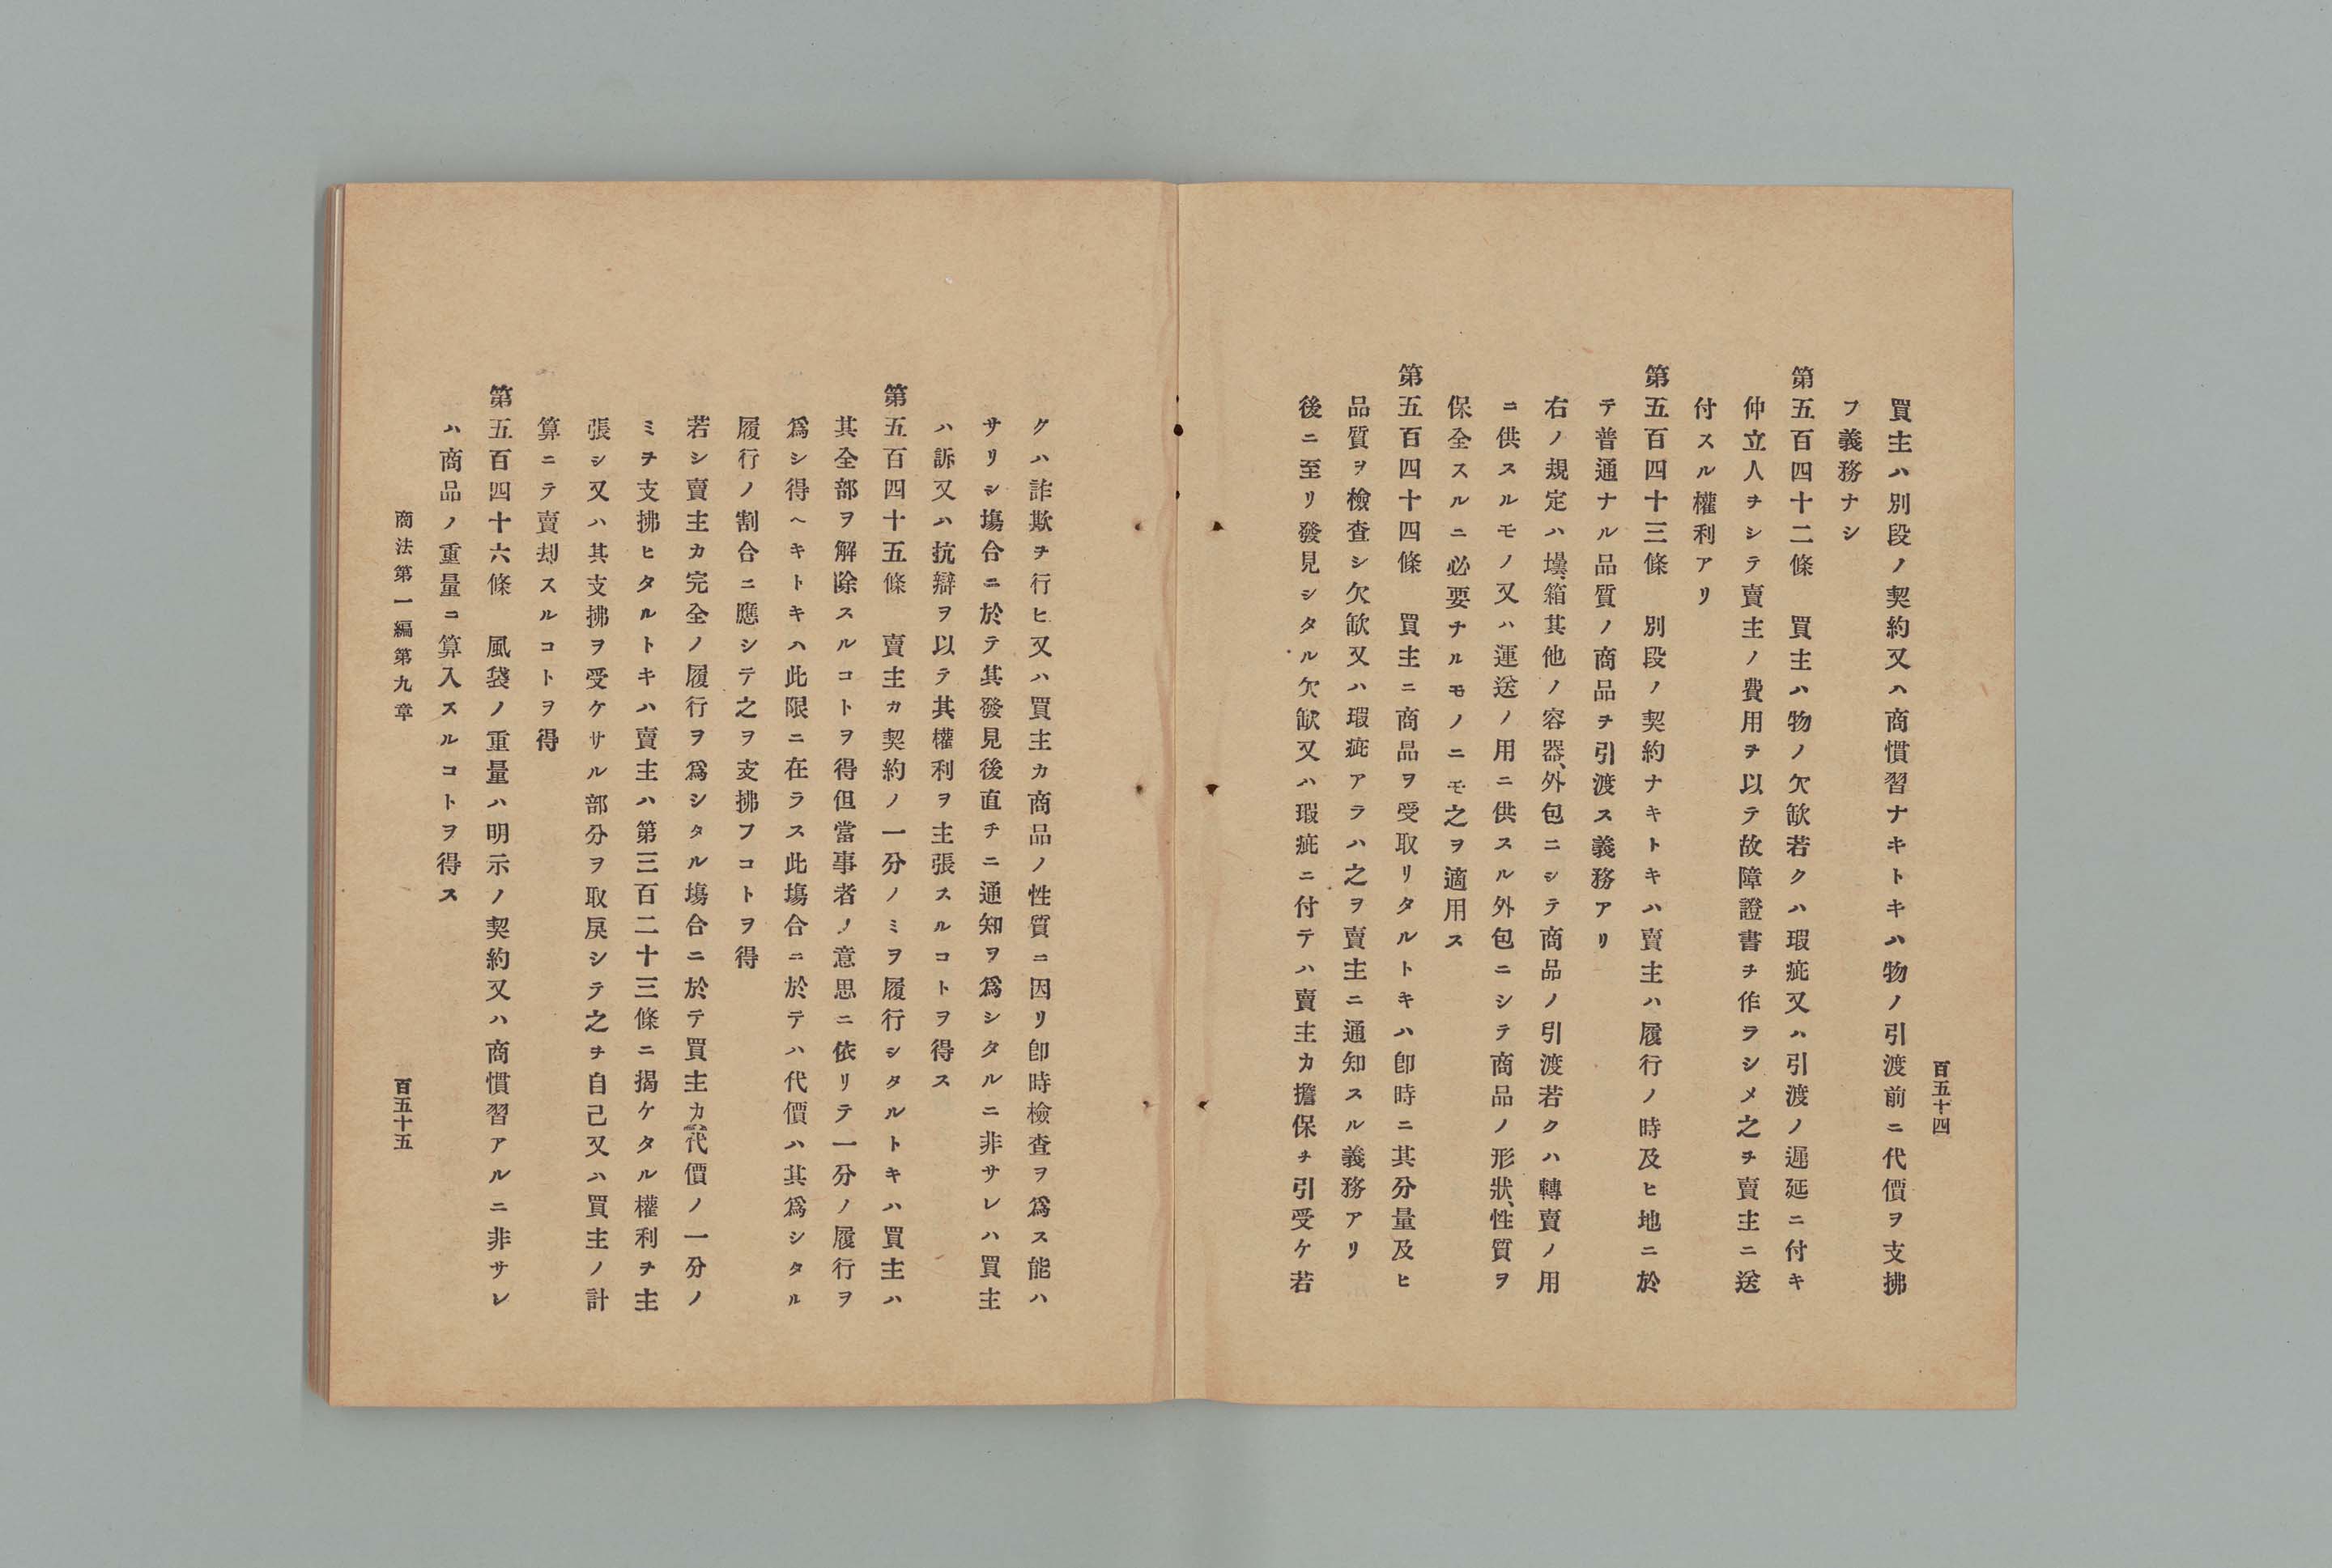 百五十四
買主ハ別段ノ契約又ハ商慣習ナキトキハ物ノ引渡前ニ代價ヲ支拂
フ義務ナシ
第五百四十二條　買主ハ物ノ欠缺若クハ瑕疵又ハ引渡ノ遲延ニ付キ
仲立人ヲシテ賣主ノ費用ヲ以テ故障證書ヲ作ラシメ之ヲ賣主ニ送
付スル權利アリ
第五百四十三條　別段ノ契約ナキトキハ賣主ハ履行ノ時及ヒ地ニ於
テ普通ナル品質ノ商品ヲ引渡ス義務アリ
右ノ規定ハ壜、箱其他ノ容器、外包ニシテ商品ノ引渡若クハ轉賣ノ用
ニ供スルモノ又ハ運送ノ用ニ供スル外包ニシテ商品ノ形狀、性質ヲ
保全スルニ必要ナルモノニモ之ヲ適用ス
第五百四十四條　買主ニ商品ヲ受取リタルトキハ卽時ニ其分量及ヒ
品質ヲ檢查シ欠缺又ハ瑕疵アラハ之ヲ賣主ニ通知スル義務アリ
後ニ至リ發見シタル欠缺又ハ瑕疵ニ付テハ賣主カ擔保ヲ引受ケ若
クハ詐欺ヲ行ヒ又ハ買主カ商品ノ性質ニ因リ卽時檢查ヲ爲ス能ハ
サリシ塲合ニ於テ其發見後直チニ通知ヲ爲シタルニ非サレハ買主
ハ訴又ハ抗辯ヲ以テ其權利ヲ主張スルコトヲ得ス
第五百四十五條　賣主カ契約ノ一分ノミヲ履行シタルトキハ買主ハ
其全部ヲ解除スルコトヲ得但當事者ノ意思ニ依リテ一分ノ履行ヲ
爲シ得ヘキトキハ此限ニ在ラス此塲合ニ於テハ代價ハ其爲シタル
履行ノ割合ニ應シテ之ヲ支拂フコトヲ得
若シ賣主カ完全ノ履行ヲ爲シタル塲合ニ於テ買主カ代價ノ一分ノ
ミヲ支拂ヒタルトキハ賣主ハ第三百二十三條ニ揭ケタル權利ヲ主
張シ又ハ其支拂ヲ受ケサル部分ヲ取戾シテ之ヲ自己又ハ買主ノ計
算ニテ賣却スルコトヲ得
第五百四十六條　風袋ノ重量ハ明示ノ契約又ハ商慣習アルニ非サレ
ハ商品ノ重量ニ算入スルコトヲ得ス
商法第一編第九章　百五十五